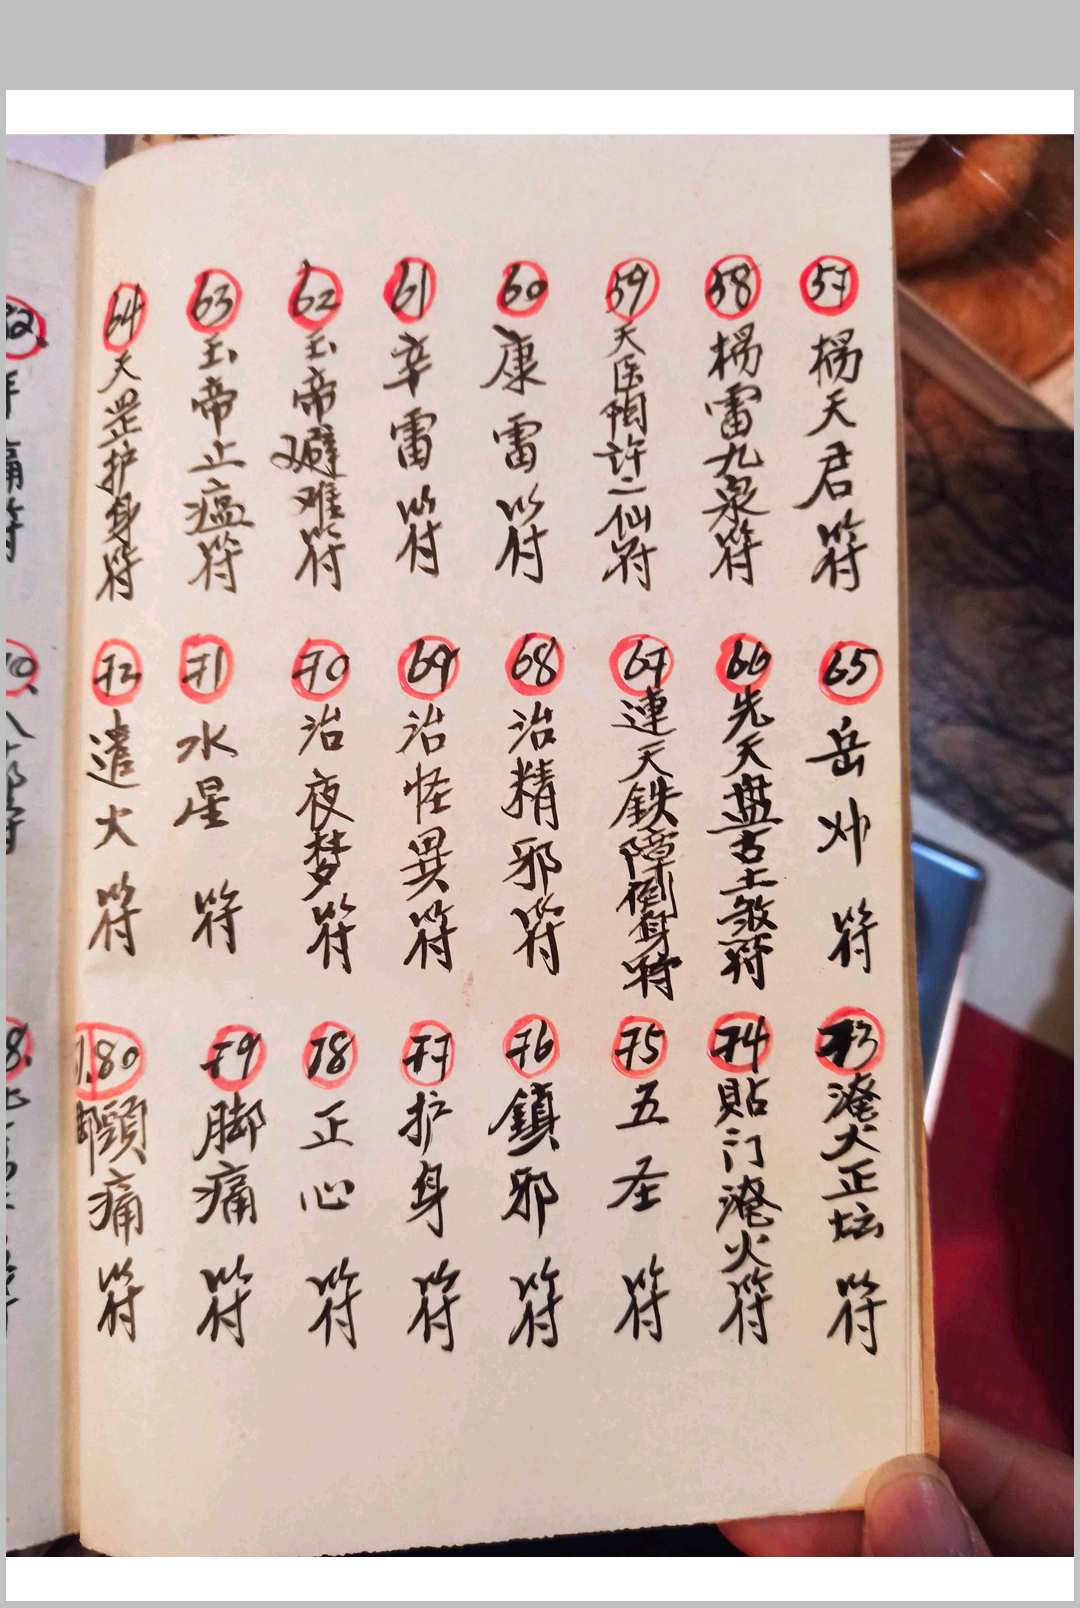 57 楊天君符
58 楊雷九泉符
59 天医陶许二仙符
60 康雷符
61 辛雷符
62 玉帝避难符
63 玉帝止瘟符
64 天罡护身符
65 岳 符
66 先天盘古土煞符
67 連天鉄障倒身符
68 治精邪符
69 治怪異符
70 治夜梦符
71 水星符
72 遣火符
73 淹火正坛符
74 貼门淹火符
75 五圣符
76 鎮邪符
77 护身符
78 正心符
79 脚痛符
80 頭痛符
痛符